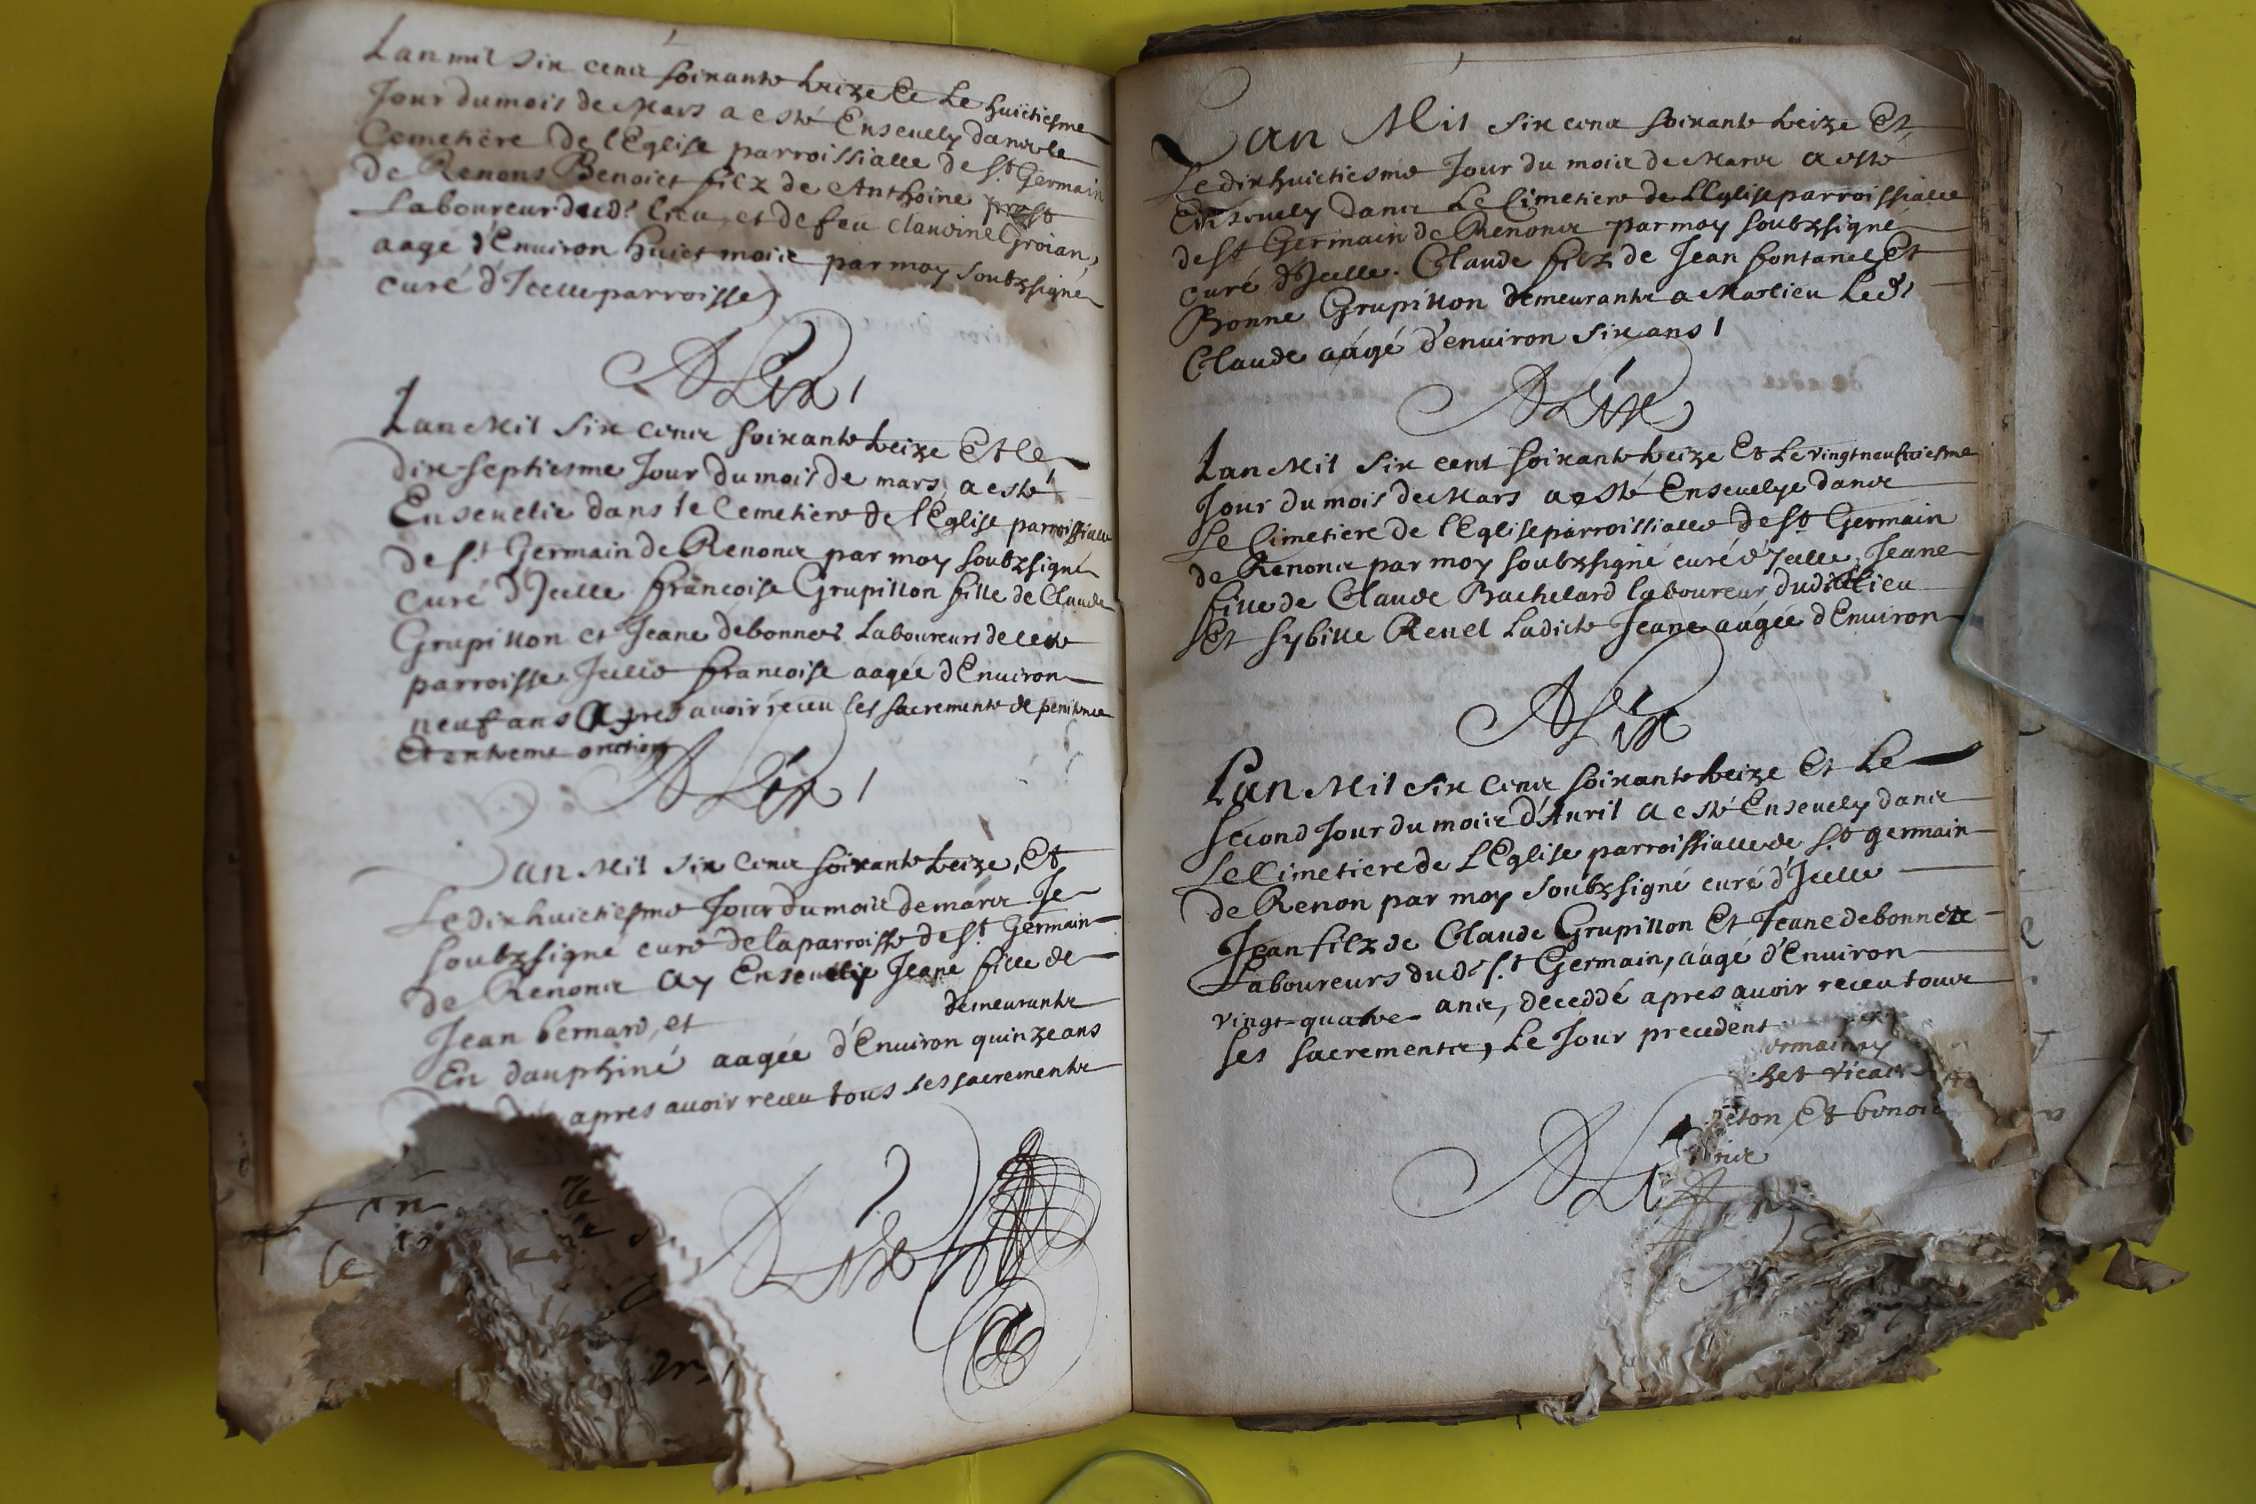 Lan mil six centz soixante treize Et Le huictiesme
Jour du mois de Mars a esté Enseuely dans le
Cemetière de l'Eglise parroissialle de St Germain
de Renons Benoict filz de Anthoine
Laboureur dud. lieu, et de feu Claudine Groian,
aagé d'Enuiron huict mois par moy soubzsigné
curé d'Icelle parroisse
Alix
Lan Mil Six centz soixante treize Et le
dix-septiesme Jour du mois de mars, a esté
Enseuelie dans le Cemetiere de l'Eglise parroissialle
de St Germain de Renons par moy soubzsigné
curé d'Icelle francoise Grupillon fille de Claude
Grupillon et Jeane debonnes Laboureurs de ceste
parroisse. Icelle francoise aagée d'Enuiron
neuf ans Apres auoir receu les sacrements de penitence
Et extreme onction
Alix
Lan Mil Six centz soixante treize, Et
Le dix huictiesme Jour du mois de mars Je
soubzsigné curé de la parroisse de St Germain
de Renons ay Enseuelie Jeane fille de
Jean bernard, et demeurants
En dauphiné aagée d'Enuiron quinze ans
apres auoir receu tous les sacrements
Alix
Lan Mil six centz soixante treize Et
Le dix huictiesme Jour du mois de Mars a esté
Enseuely dans Le Cimetiere de L'Eglise parroissialle
de St Germain de Renons par moy soubzsigné
curé d'Icelle. Claude filz de Jean fontanel Et
Bonne Grupillon demeurants a Marlieu Led.
Claude aágé d'enuiron six ans
Alix
Lan Mil six cent soixante treize Et Le vingt neufuiesme
Jour du mois de Mars a esté Enseuelye dans
Le Cimetiere de l'Eglise parroissialle de St Germain
de Renons par moy soubzsigné curé d'Icelle, Jeane
fille de Claude Bachelard laboureur dudit lieu
Et Sybille Reuel Ladicte Jeane aágée d'Enuiron
Alix
Lan Mil six centz soixante treize Et Le
second Jour du mois d'Auril a esté Enseuely dans
Le Cimetiere de L'Eglise parroissialle de St germain
de Renon par moy soubzsigné curé d'Icelle
Jean filz de Claude Grupillon Et Jeane debonnes
Laboureurs dud. St Germain, aágé d'Enuiron
vingt-quatre ans, deceddé apres auoir receu tous
ses sacrements, Le Jour precedent